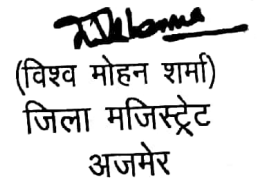 (विश्व मोहन शर्मा)
जिला मजिस्ट्रेट
अजमेर